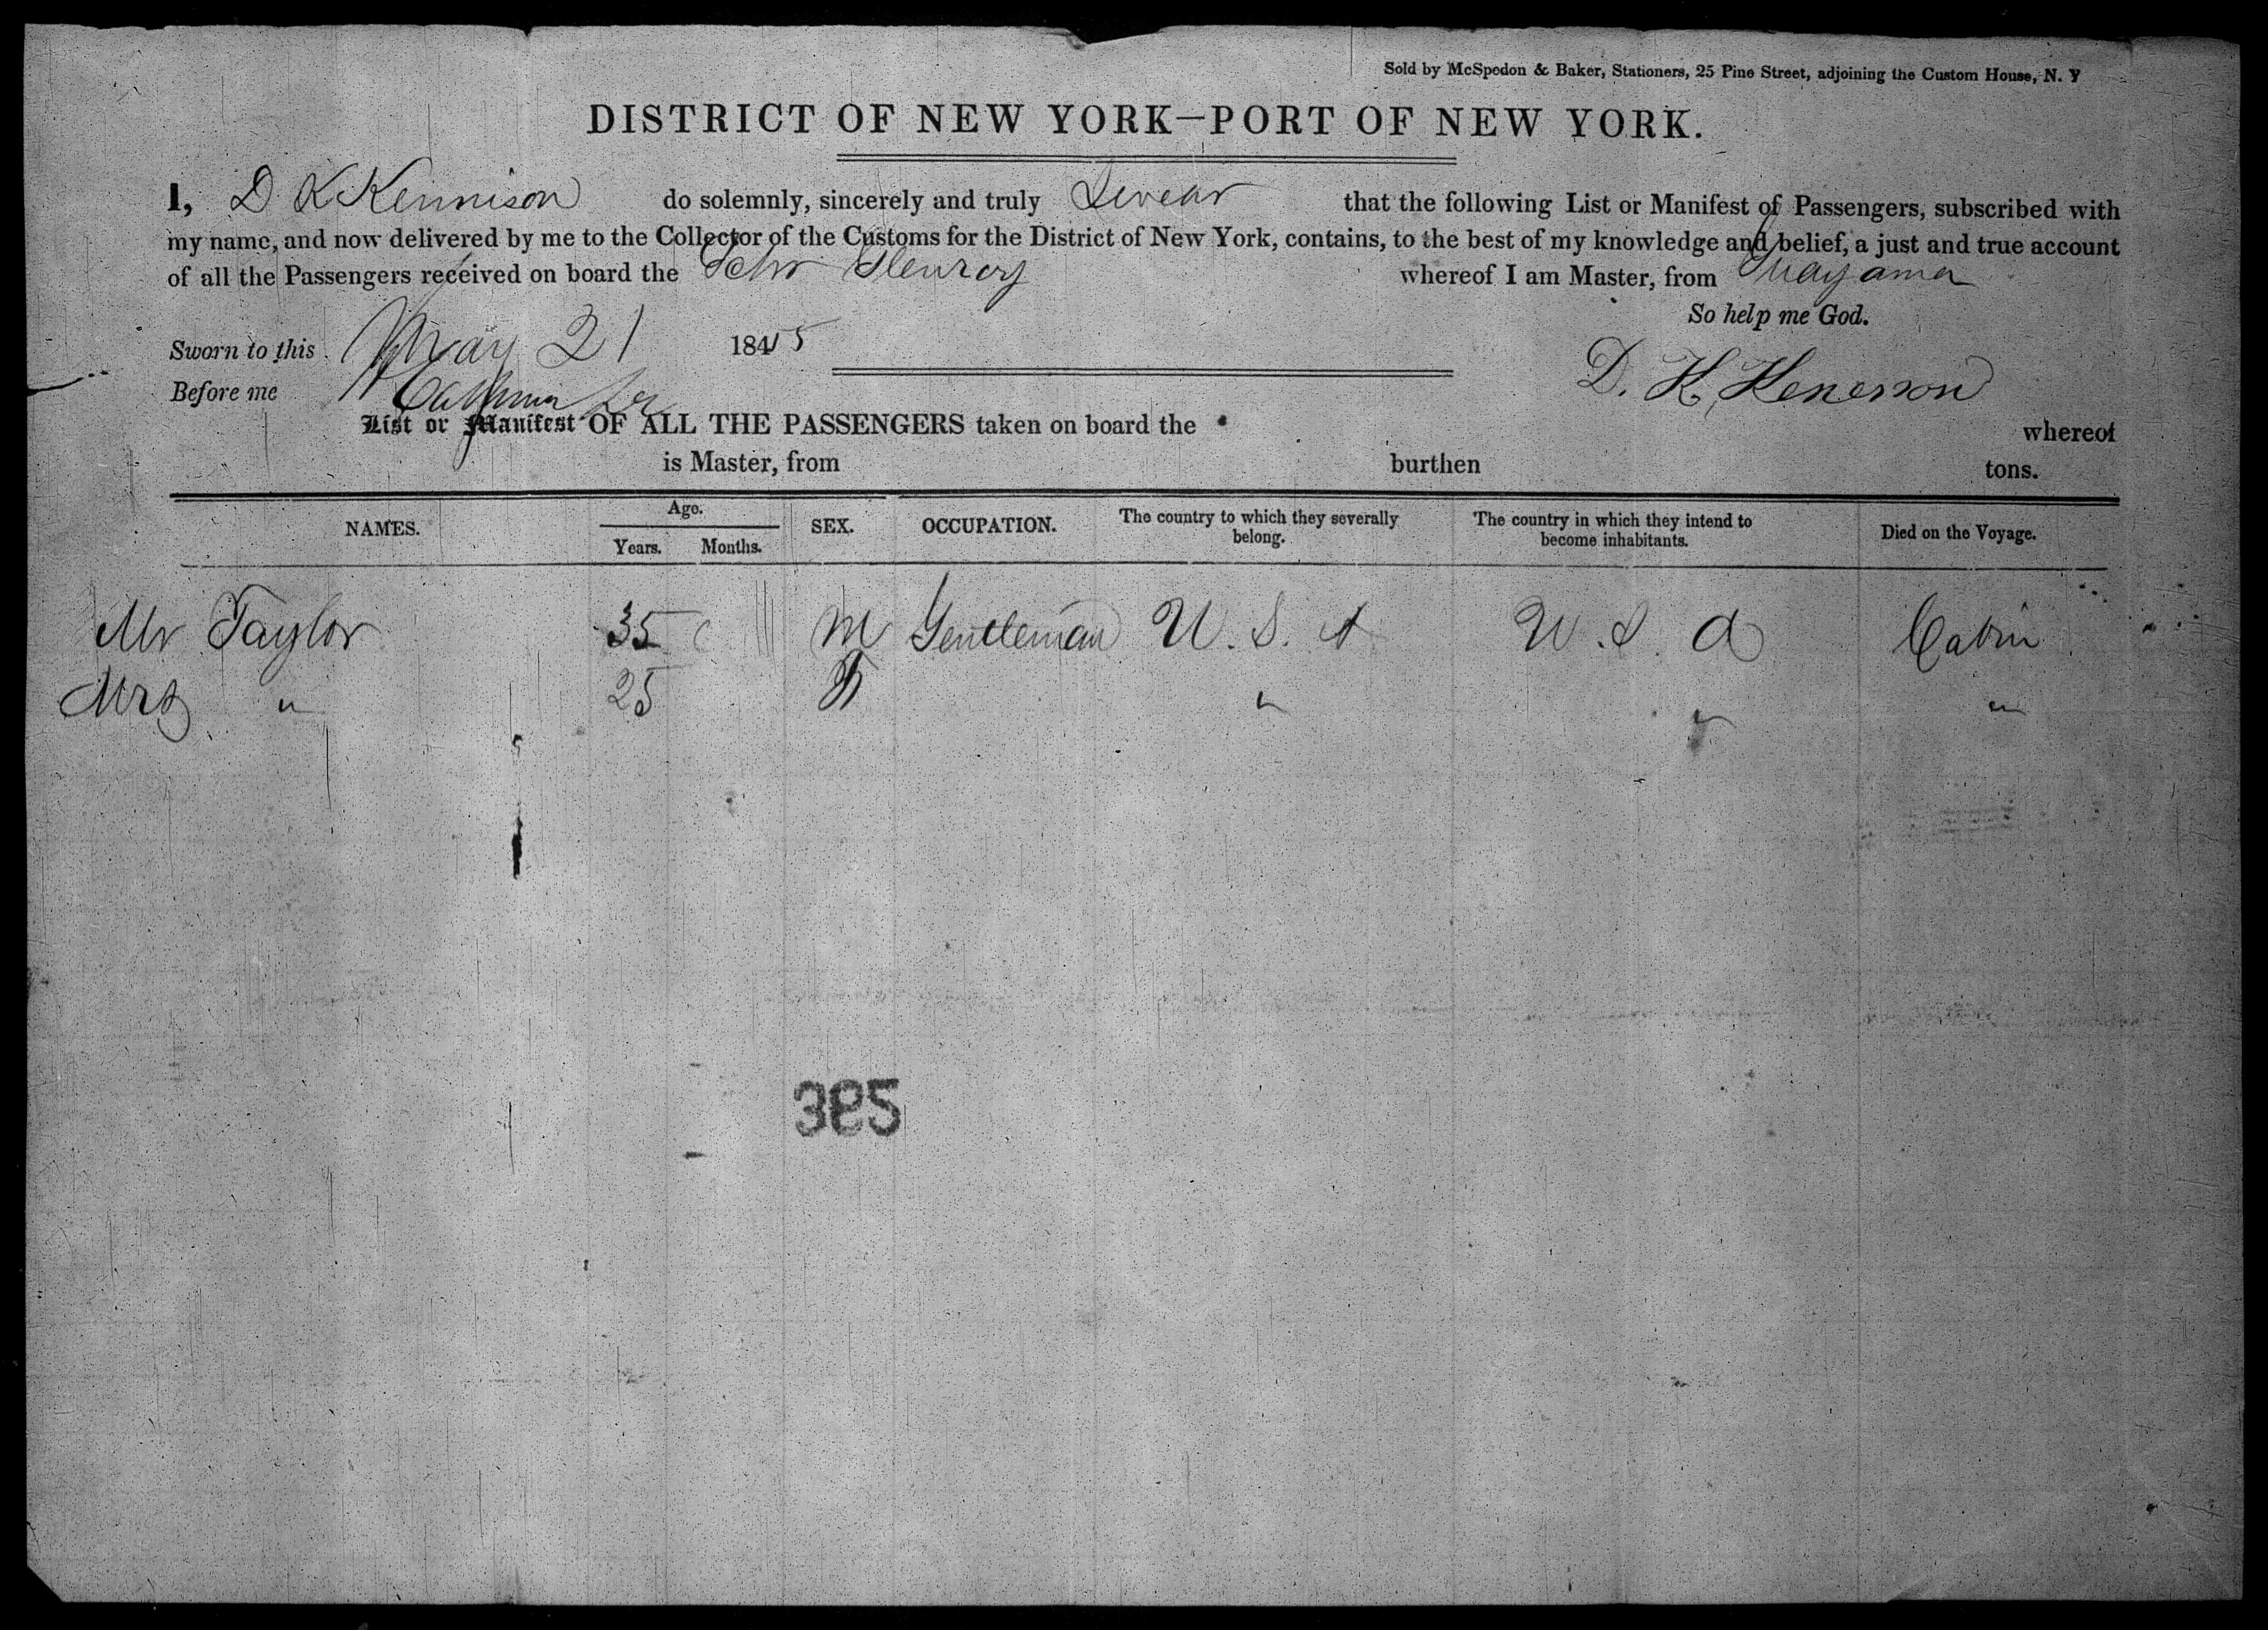 Sold by McSpedon & Baker, Stationers, 25 Pine Street, adjoining the Custom House, N. Y
DISTRICT OF NEW YORK—PORT OF NEW YORK.
I, D K Kennison do solemnly, sincerely and truly Swear that the following List or Manifest of Passengers, subscribed with
my name, and now delivered by me to the Collector of the Customs for the District of New York, contains, to the best of my knowledge and belief, a just and true account
of all the Passengers received on board the Schr Henry whereof I am Master, from
So help me God.
Sworn to this May 21 1845
Before me
D. K. Kenerson
List or Manifest OF ALL THE PASSENGERS taken on board the whereof
is Master, from burthen tons.
NAMES. Age. Years. Months. SEX. OCCUPATION. The country to which they severally belong. The country in which they intend to become inhabitants. Died on the Voyage.
Mr Taylor 35 M Gentleman U. S. A U. S. A Cabin
Mrs " 25 F " " "
385